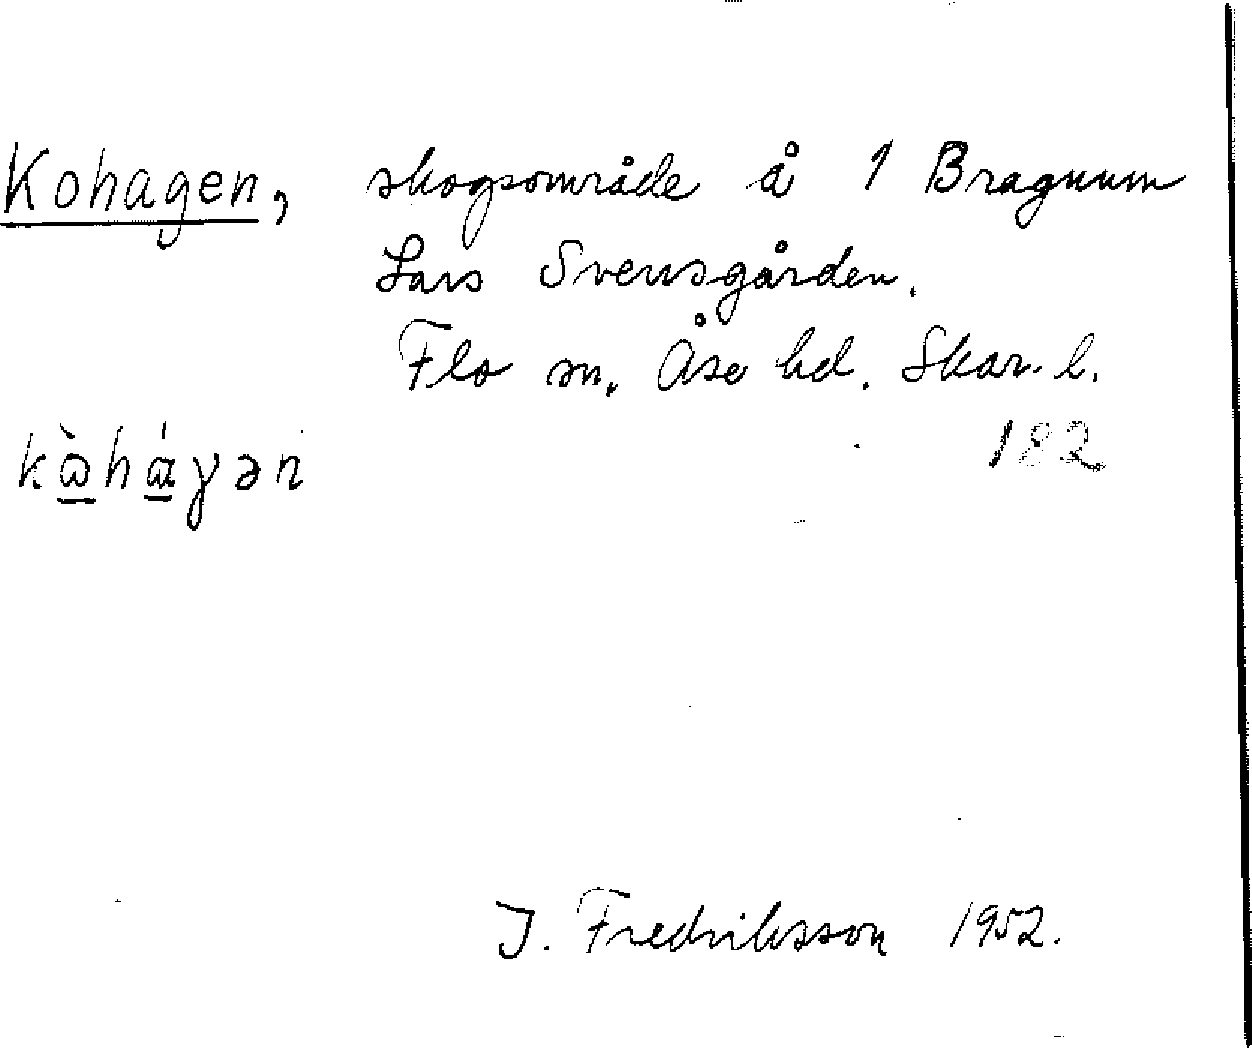 Kohagen, skogsområde å 1 Bragnum
Lars Svensgården.
Flo sn. Åse hd. Skar. l.
182
kὼhάγən
J. Fredriksson 1952.